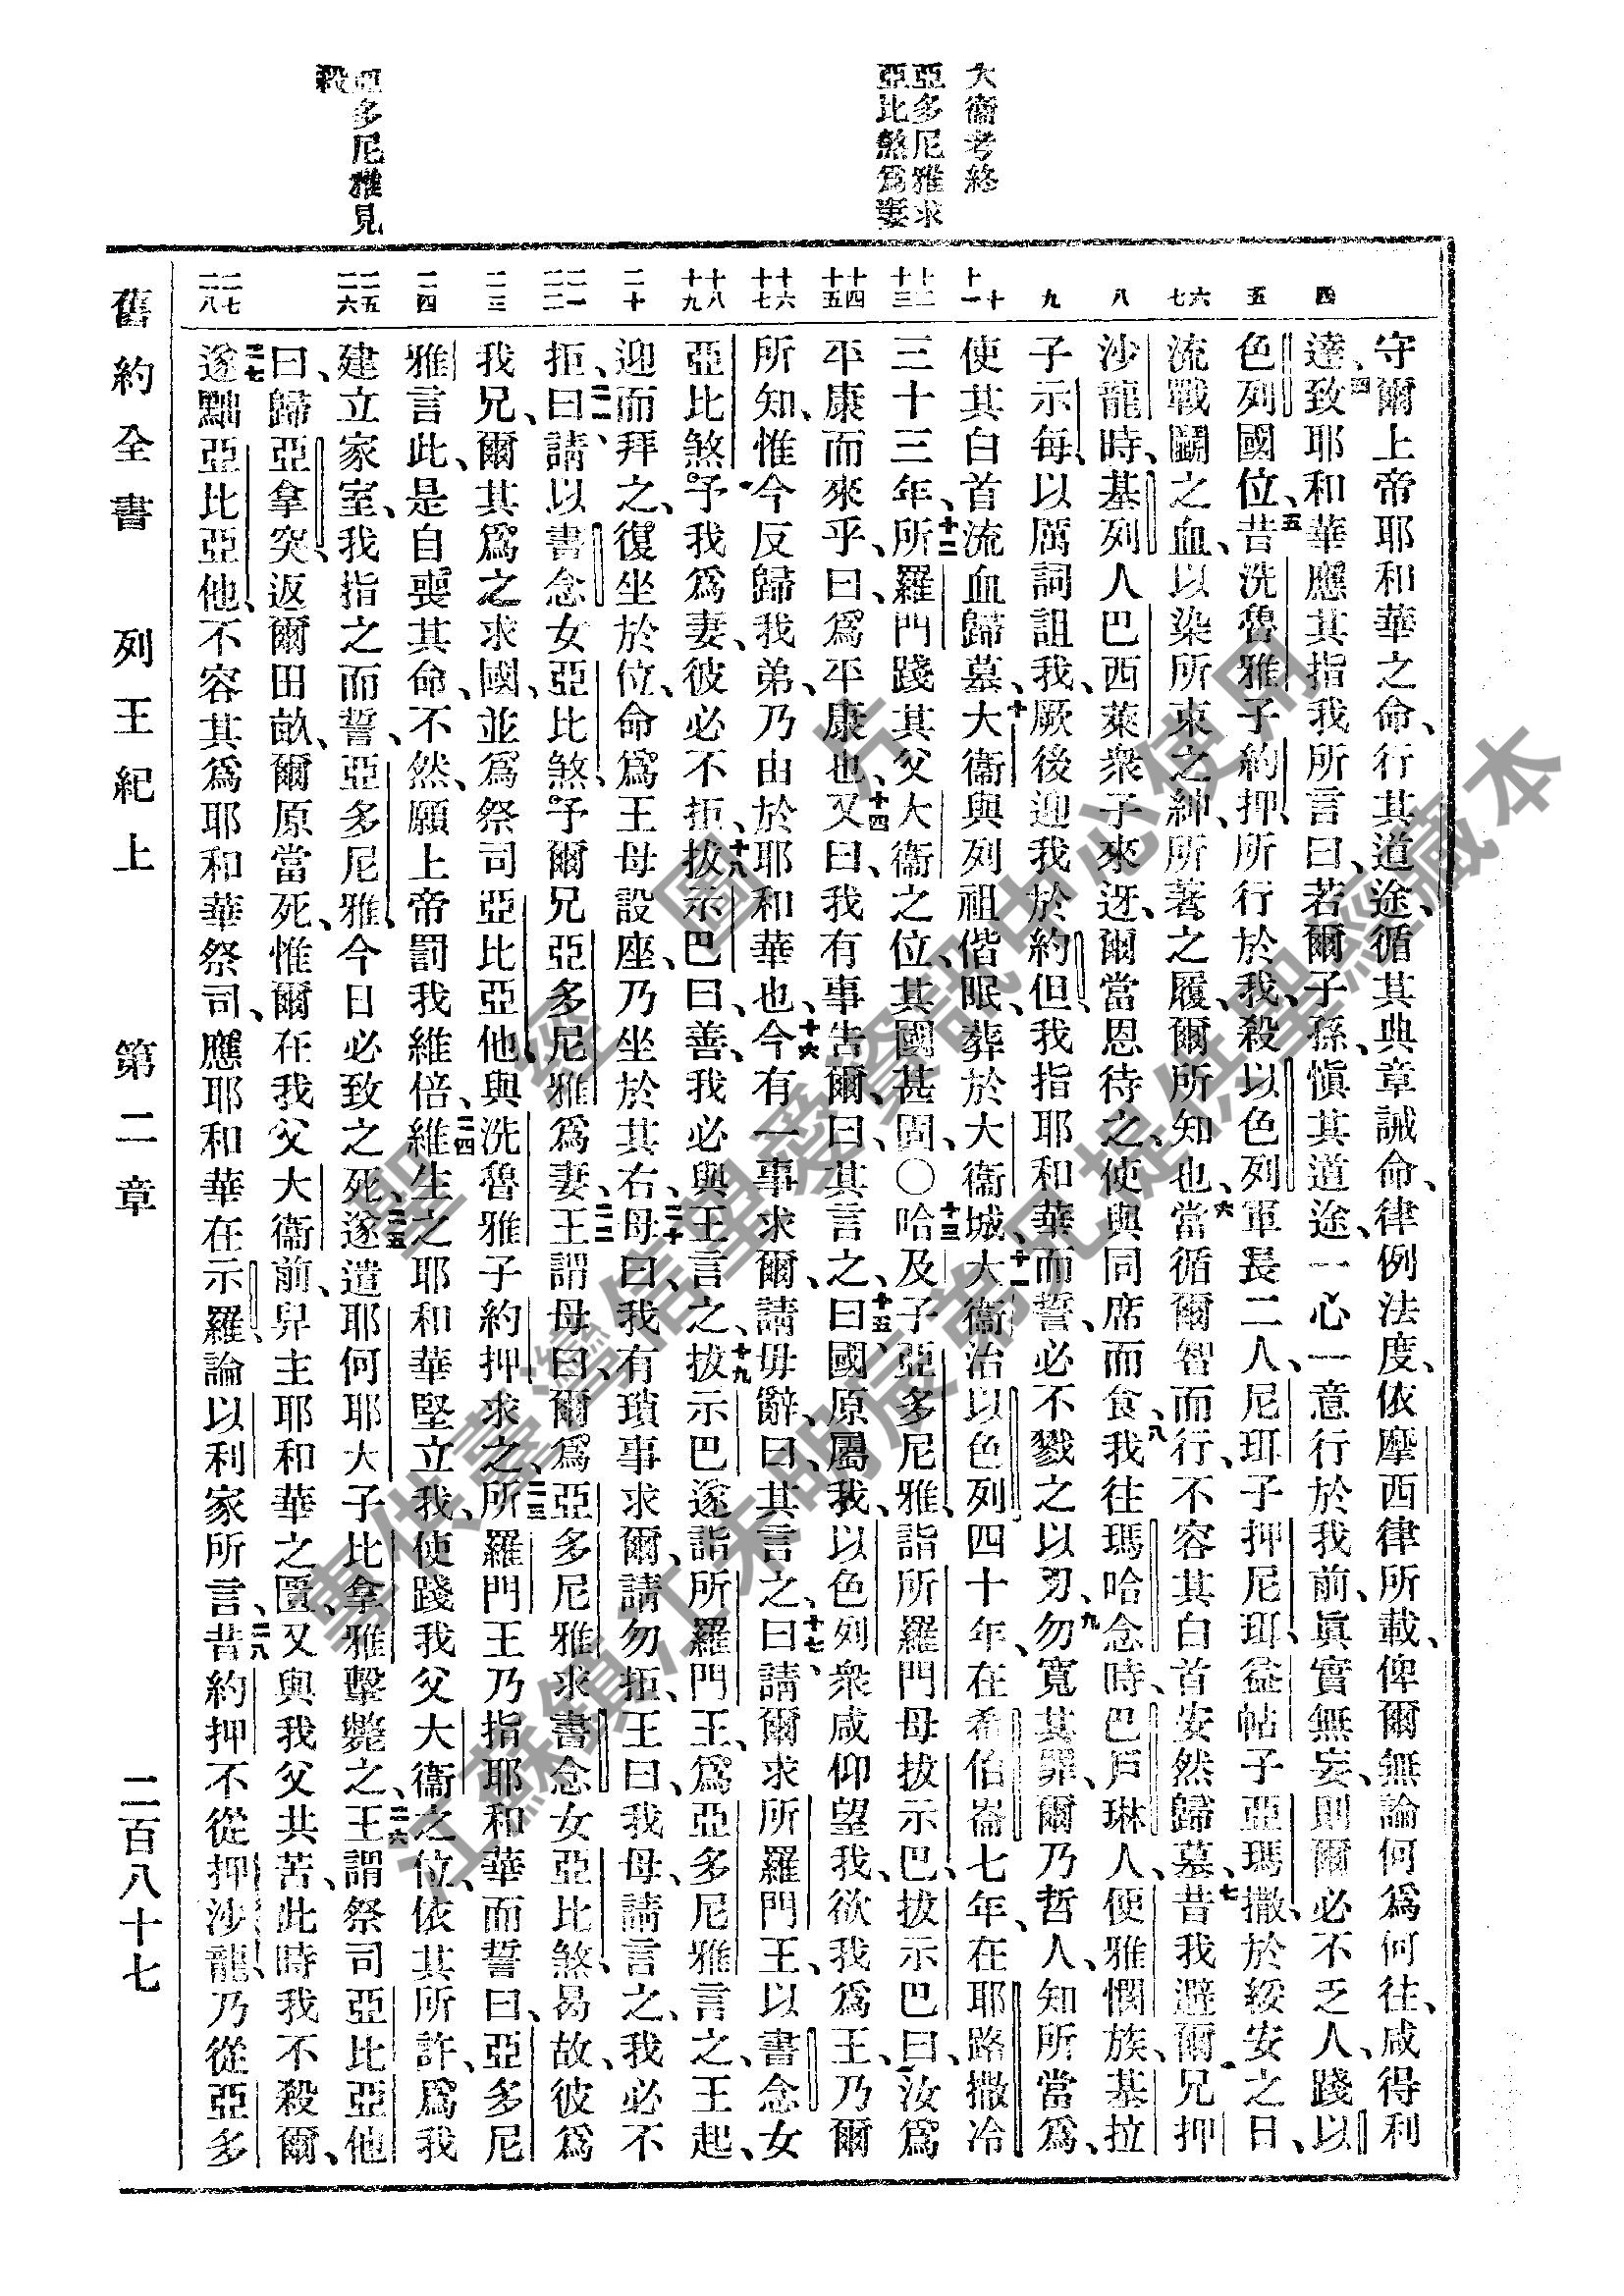 大衞考終
亞多尼雅求
亞比煞爲妻
亞多尼雅見
殺
四
五
六
七
八
九
十
十一
十二
十三
十四
十五
十六
十七
十八
十九
二十
二一
二二
二三
二四
二五
二六
二七
二八
守爾上帝耶和華之命、行其道途、循其典章誡命、律例法度、依摩西律所載、俾爾無論何爲何往、咸得利
達、四致耶和華應其指我所言曰、若爾子孫、愼其道途、一心一意行於我前、眞實無妄、則爾必不乏人、踐以
色列國位、五昔洗魯雅子約押、所行於我、殺以色列軍長二人、尼珥子押尼珥、益帖子亞瑪撒、於綏安之日、
流戰鬭之血、以染所束之紳、所著之履、爾所知也、六當循爾智而行、不容其白首安然歸墓、七昔我避爾兄押
沙龍時、基列人巴西萊衆子來迓、爾當恩待之、使與同席而食、八我往瑪哈念時、巴戶琳人、便雅憫族、基拉
子示每、以厲詞詛我、厥後迎我於約但、我指耶和華而誓、必不戮之以刃、九勿寬其罪、爾乃哲人、知所當爲、
使其白首流血歸墓、十大衞與列祖偕眠、葬於大衞城、十一大衞治以色列四十年、在希伯崙七年、在耶路撒冷
三十三年、十二所羅門踐其父大衞之位、其國甚固、○十三哈及子亞多尼雅、詣所羅門母拔示巴、拔示巴曰、汝爲
平康而來乎、曰、爲平康也、十四又曰、我有事告爾、曰、其言之、十五曰、國原屬我、以色列衆咸仰望我、欲我爲王、乃爾
所知、惟今反歸我弟、乃由於耶和華也、十六今有一事求爾、請毋辭、曰、其言之、十七曰、請爾求所羅門王、以書念女
亞比煞、予我爲妻、彼必不拒、十八拔示巴曰、善、我必與王言之、十九拔示巴遂詣所羅門王、爲亞多尼雅言之、王起、
迎而拜之、復坐於位、命爲王母設座、乃坐於其右、二十母曰、我有瑣事求爾、請勿拒、王曰、我母、請言之、我必不
拒、二一曰、請以書念女、亞比煞、予爾兄亞多尼雅爲妻、二二王謂母曰、爾爲亞多尼雅求書念女亞比煞、曷故、彼爲
我兄、爾其爲之求國、並爲祭司亞比亞他、與洗魯雅子約押求之、二三所羅門王乃指耶和華而誓曰、亞多尼
雅言此、是自喪其命、不然、願上帝罰我維倍、二四維生之耶和華堅立我、使踐我父大衞之位、依其所許、爲我
建立家室、我指之而誓、亞多尼雅、今日必致之死、二五遂遣耶何耶大子比拿雅擊斃之、二六王謂祭司亞比亞他
曰、歸亞拿突、返爾田畝、爾原當死、惟爾在我父大衞前、舁主耶和華之匱、又與我父共苦、此時我不殺爾、
二七遂黜亞比亞他、不容其爲耶和華祭司、應耶和華在示羅、論以利家所言、二八昔約押不從押沙龍、乃從亞多
舊約全書　列王紀上　第二章　二百八十七
聖經圖片
專供臺灣信望愛資訊中心使用
江蘇鎮江朱明辰弟兄提供聖經藏本